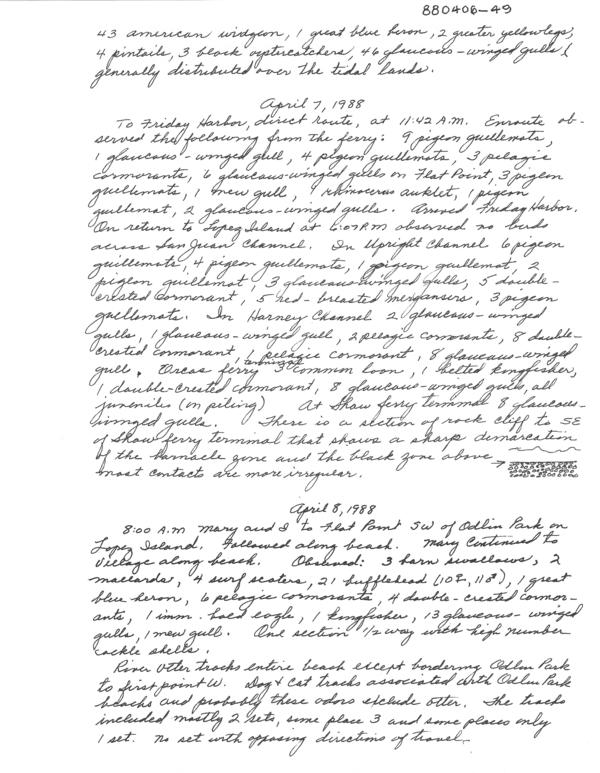 880406-49
43 american widgeon, 1 great blue heron, 2 greater yellowlegs,
4 pintails, 3 black oystercatchers, 46 glaucous-winged gulls (
generally distributed over the tidal lands.
April 7, 1988
To Friday Harbor, direct route, at 11:42 A.M. Enroute ob-
served the following from the ferry: 9 pigeon guillemots,
1 glaucous-winged gull, 4 pigeon guillemots, 3 pelagic
cormorants, 6 glaucous-winged gulls on Flat Point, 3 pigeon
guillemots, 1 mew gull, 1 rhinoceros auklet, 1 pigeon
guillemot, 2 glaucous-winged gulls. Arrived Friday Harbor.
On return to Lopez Island at 6:07 P.M observed no birds
across San Juan Channel. In Upright Channel 6 pigeon
guillemots, 4 pigeon guillemots, 1 pigeon guillemot, 2
pigeon guillemot, 3 glaucous-winged gulls, 5 double-
crested cormorant, 5 red-breasted mergansers, 3 pigeon
guillemots. In Harney Channel 2 glaucous-winged
gulls, 1 glaucous-winged gull, 2 pelagic cormorants, 8 double-
crested cormorant, 6 pelagic cormorant, 8 glaucous-winged
gull. Orcas ferry terminal 3 common loon, 1 belted kingfisher,
1 double-crested cormorant, 8 glaucous-winged gulls, all
juveniles (on piling) At Shaw ferry terminal 8 glaucous-
winged gulls. There is a section of rock cliff to SE
of Shaw ferry terminal that shows a sharp demarcation
of the barnacle zone and the black zone above
most contacts are more irregular.
April 8, 1988
8:00 A.M Mary and I to Flat Point SW of Odlin Park on
Lopez Island. Followed along beach. Mary continued to
Village along beach. Observed: 3 barn swallows, 2
mallards, 4 surf scoters, 21 bufflehead (10♀, 11♂), 1 great
blue heron, 6 pelagic cormorants, 4 double-crested cormor-
ants, 1 imm. bald eagle, 1 kingfisher, 13 glaucous-winged
gulls, 1 mew gull. One section 1/2 way with high number
cockle shells.
River Otter tracks entire beach except bordering Odlin Park
to first point W. Dog & Cat tracks associated with Odlin Park
beachs and probably these odors exclude otter. The tracks
included mostly 2 sets, some place 3 and some places only
1 set. No set with opposing directions of travel.